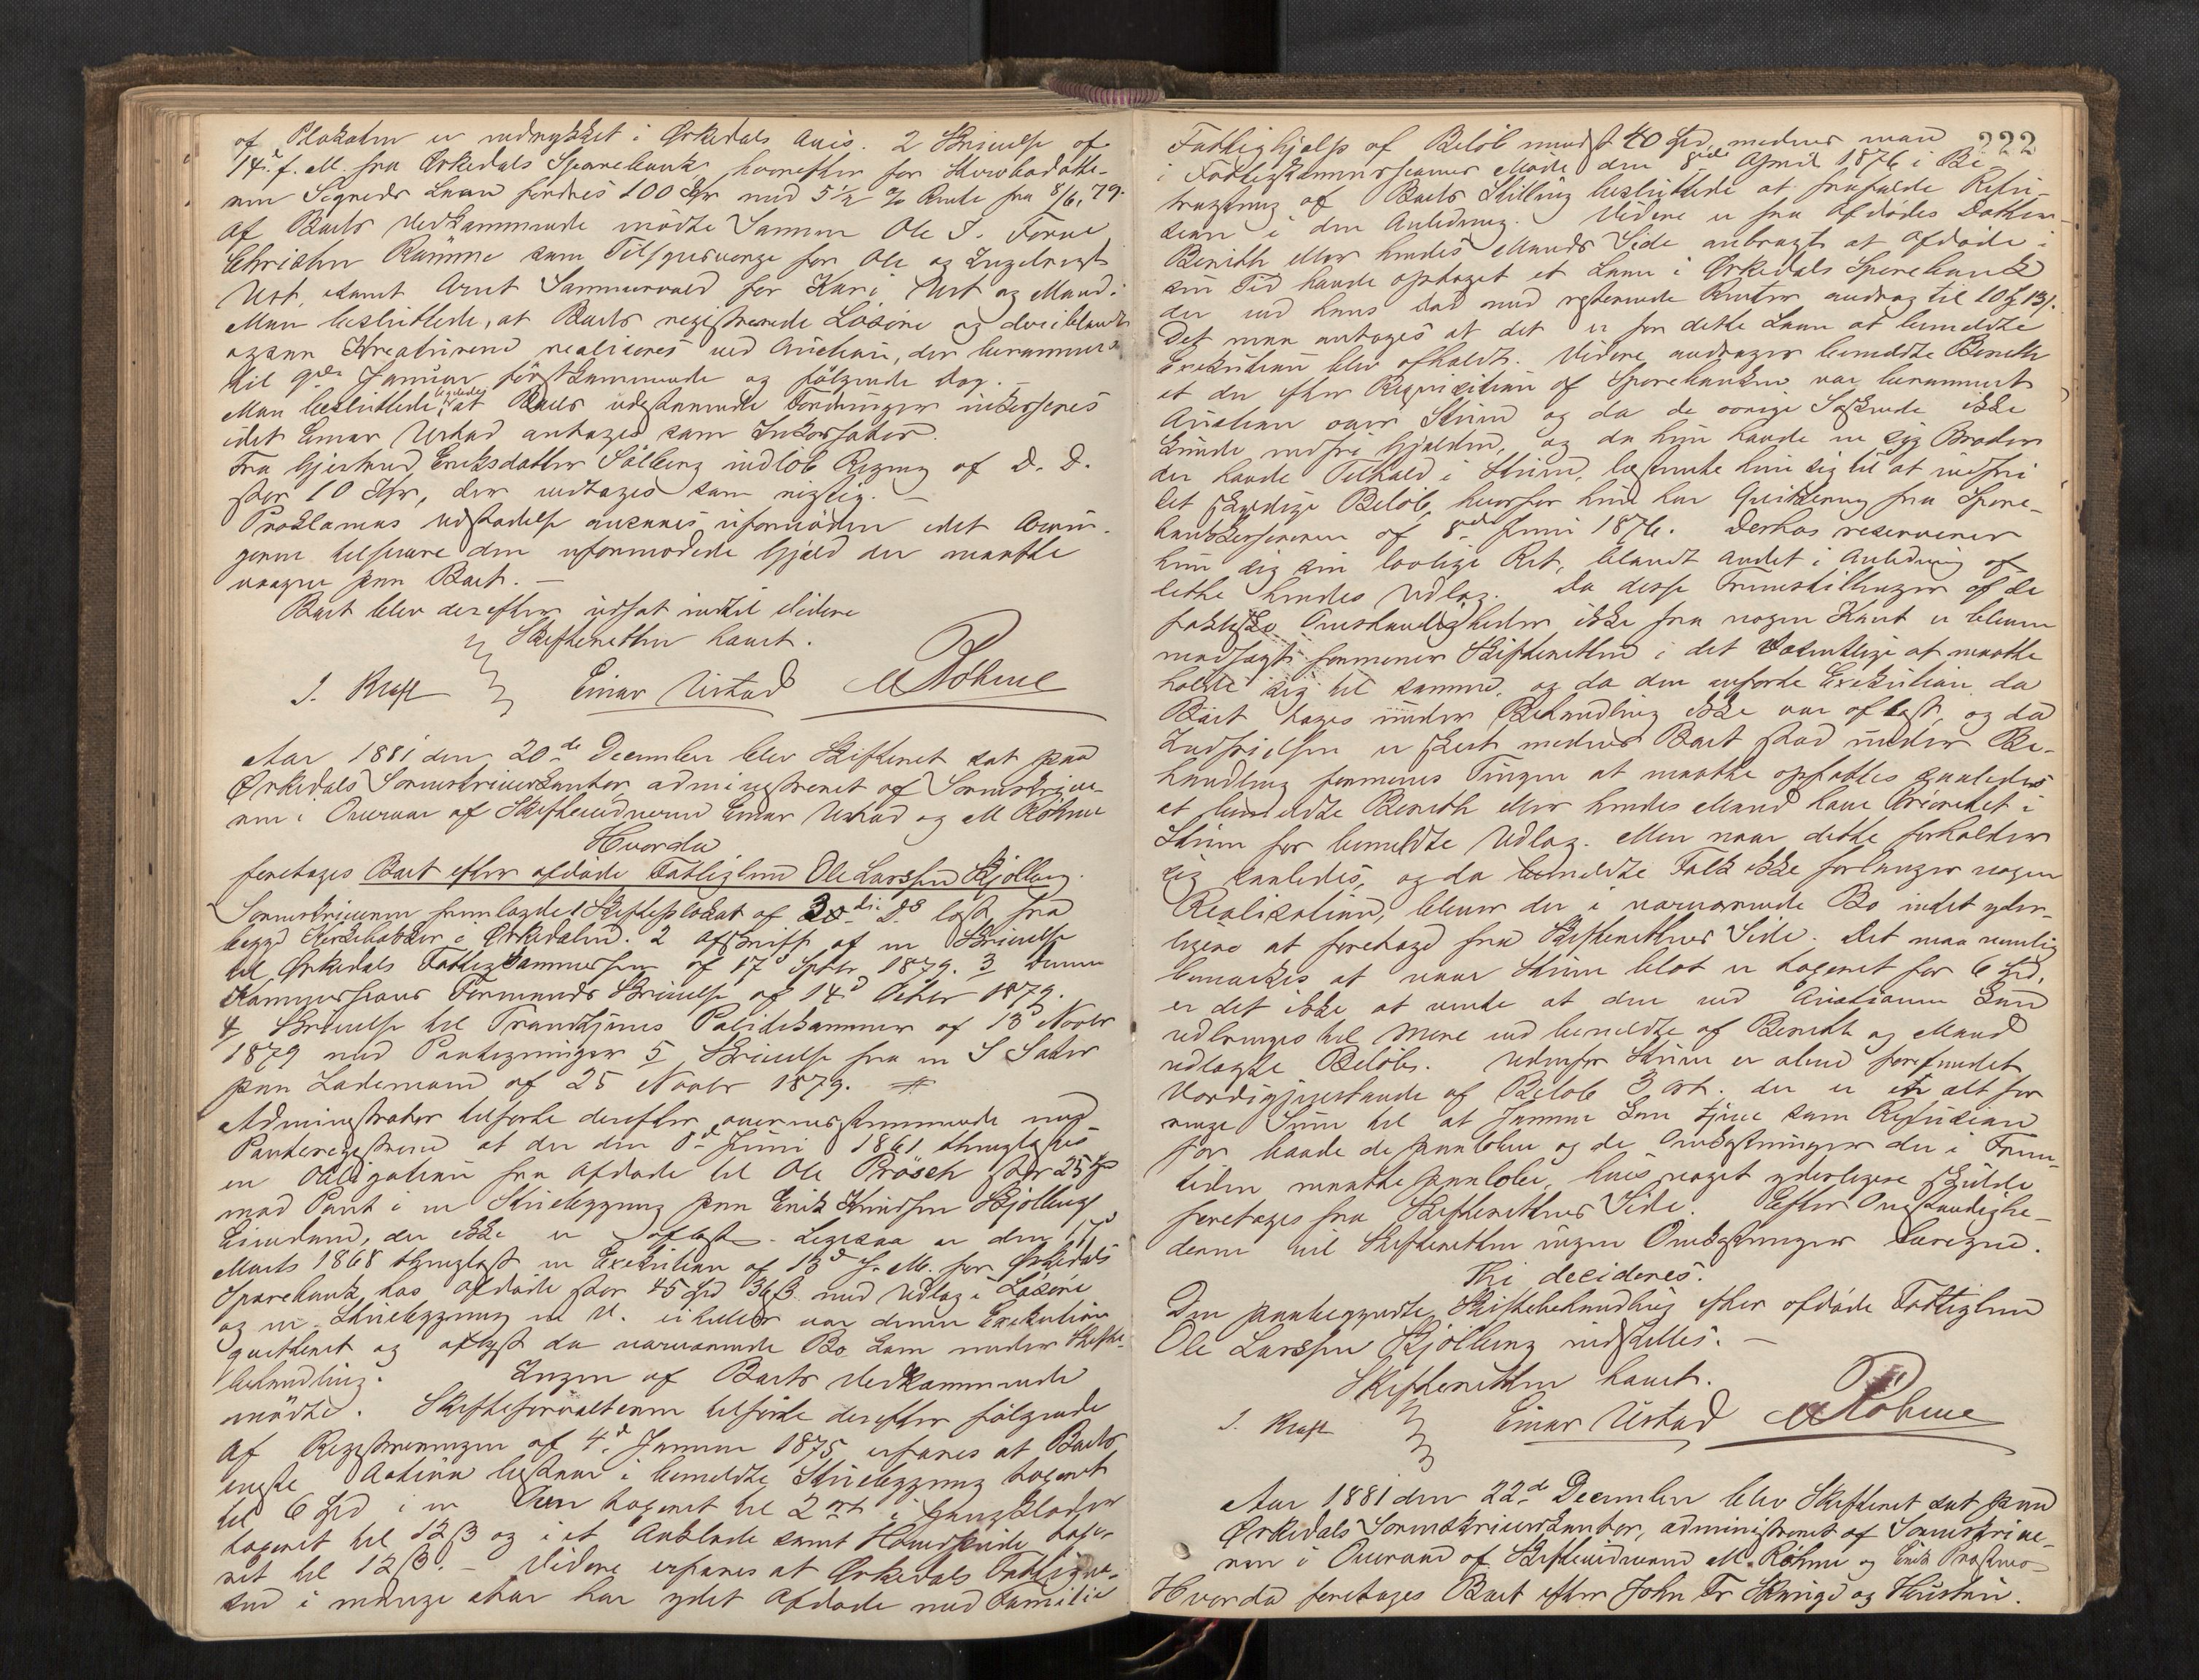 af Plakaten er indrykket i Ørkedals Avis. 2 Skrivelse af
14d. f. M. fra Ørkedals Sparebank, hvorefter for
Laan fordres 100 Kr med 5 1/2 % Rente fra 8/6, 79.
Af Boets Vedkommende mødte Sønnen Ole J.
Christen Rømme som Tilsynsværge for Ole og Ingebrigt
Ust, samt Arnt Sommervold for Kari Ust og Mand.
Man besluttede, at Boets registrerede Løsøre og deriblandt
ogsaa Kreaturene realiseres ved Auction, der berammes
til 9de Januar førstkommende og følgende Dag. –
Man besluttede ligeledes, at Boets udestaaende Fordringer inkasseres
idet Einar Urstad antages som Inkassator.
Fra Gjertrud Eriksdatter Solberg indløb Regning af D. D.
stor 10 Kr, der vedtages som rigtig. –
Proklamas Udstedelse ansaaes ufornøden idet Arvin-
gerne tilsvare den uformodede Gjæld der maatte
paa Boet. –
Boet blev derefter udsat indtil videre
Skifteretten hævet.
J. Kraft Einar Urstad M Røhme
Aar 1881 den 20de December blev Skifteret sat paa
Ørkedals Sorenskriverkontor administreret af Sorenskrive-
ren i Overvær af Skiftevidnerne Einar Urstad og M Røhme
Hvorda
foretages Boet efter afdøde Fattiglem Ole Larssen Kjølberg.
Sorenskriveren fremlagde 1 Skifteplakat af Ds læst fra
begge Kirkebakker i Ørkedalen. 2 Afskrift af en Skrivelse
til Ørkedals Fattigkommission af 17d Septbr 1879. 3 Denne
Kommissions Formands Skrivelse af 14d Octbr 1879.
4 Skrivelse til Trondhjems Politikammer af 13d Novbr
1879 med Paategninger 5 Skrivelse fra en S Sæter
paa Lademoen af 25 Novbr 1879. #
Administrator tilførte derefter overensstemmende med
Panteregistrene at der den Juni 1861 thinglæstes
en Obligation fra Afdøde til Ole Brøsch stor 25
med Pant i en Stuebygning paa Erik Knudsen Kjølberg
Eiendom, der ikke er aflæst. Ligesaa er den 17d
Marts 1868 thinglæst en Execution af 13d s. M. for Ørkedals
Sparebank hos Afdøde stor 45 Spd 36 β med Udlæg i Løsøre
og en Stuebygning m V. ei heller var denne Execution
qvitteret og aflyst da nærværende Bo kom under Skifte-
behandling. Ingen af Boets Vedkommende
mødte. Skifteforvalteren tilførte derefter følgende
Af Registreringen af 4d Januar 1875 erfares at Boets
eneste Activa bestaar i bemeldte Stuebygning taxeret
til 6 Spd i en taxeret til 2 ort i Gangklæder
taxeret til 12 β og i et samt taxe-
ret til 12 β. – Videre erfares at Ørkedals Fattigvæ-
sen i mange Aar har ydet Afdøde med Familie
222
Fattighjælp af Beløb mindst 40 Spd, medens man
i Fattigkommissionens Møde den April 1876 i Be-
tragtning af Boets Stilling besluttede at frafalde Refu-
sion i den Anledning. Videre er fra Afdødes Datter
Bereth eller hendes Mands Side anbragt at Afdøde i
sin Tid havde optaget et Laan i Ørkedals Sparebank
der ved hans Død med resterende Renter androg til
Det maa antages at det er for dette Laan at bemeldte
Execution blev afholdt. Videre andrager bemeldte Bereth
at der efter Requisition af Sparebanken var berammet
Auction over Stuen og da de øvrige Søskende ikke
kunde indfri Gjælden, og da hun havde en syg Broder
der havde Tilhold i Stuen, bestemte hun sig til at indfri
det skyldige Beløb, hvorfor hun har Qvittering fra Spare-
bankkassereren af 8de Juni 1876. Derhos reserverer
hun sig sin lovlige Ret, blandt andet i Anledning af
dette hendes Udlæg. Da disse Fremstillinger af de
faktiske Omstændigheder ikke fra nogen Kant er bleven
modsagt formener Skifteretten i det Væsentlige at maatte
holde sig til samme, og da den anførte Execution da
Boet toges under Behandling ikke var aflæst, og da
Indfrielsen er skeet medens Boet stod under Be-
handling formenes Tingen at maatte opfattes saaledes
at bemeldte Bereth eller hendes Mand have Prioritet i
Stuen for bemeldte Udlæg. Men naar dette forholder
sig saaledes, og da bemeldte Folk ikke forlanger nogen
Realisation, bliver der i nærværende Bo intet yder-
ligere at foretage fra Skifterettens Side. Det maa nemlig
bemærkes at naar Stuen blot er taxeret for 6 Spd,
er det ikke at vente at den ved Auctionen kan
udbringes til mere end bemeldte af Bereth og Mand
udlagte Beløb. Udenfor Stuen er alene forefundet
Værdigjenstande af Beløb 3 ort. der er alt for
ringe Sum til at kunne tjene som Refusion
for baade de paaløbne og de Omkostninger der i Frem-
tiden maatte paaløbe, hvis noget yderligere skulde
foretages fra Skifterettens Side. Efter Omstændighe-
derne vil Skifteretten ingen Omkostninger beregne.
Thi decideres.
Den paabegyndte Skiftebehandling efter afdøde Fattiglem
Ole Larssen Kjølberg indstilles. –
Skifteretten hævet.
J. Kraft Einar Urstad M Røhme
Aar 1881 den 22de December blev Skifteret sat paa
Ørkedals Sorenskriverkontor, administreret af Sorenskrive-
ren i Overvær af Skiftevidnerne M. Røhme og Erik
Hvorda foretages Boet efter John Fr og Hustru.